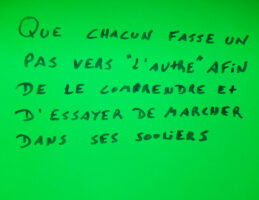 QUE CHACUN FASSE UN
PAS VERS "L'AUTRE" AFIN
DE LE COMPRENDRE ET
D'ESSAYER DE MARCHER
DANS SES SOULIERS